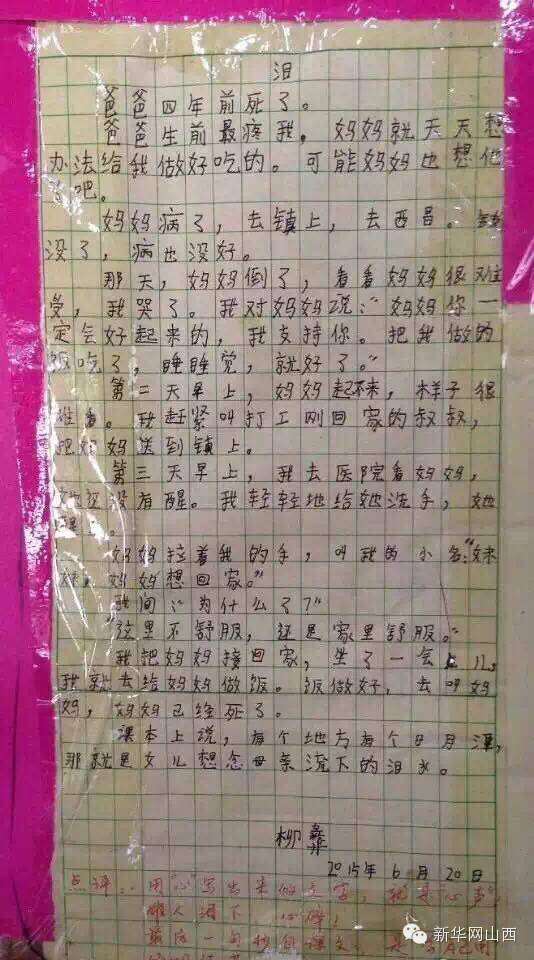 泪
爸爸四年前死了。
爸爸生前最疼我，妈妈就天天想
办法给我做好吃的。可能妈妈也想他
了吧。
妈妈病了，去镇上，去西昌。钱
没了，病也没好。
那天，妈妈倒了，看看妈妈很难
受，我哭了。我对妈妈说：“妈妈你一
定会好起来的，我支持你。把我做的
饭吃了，睡睡觉，就好了。”
第二天早上，妈妈起不来，样子很
难看。我赶紧叫打工刚回家的叔叔，
把妈妈送到镇上。
第三天早上，我去医院看妈妈，
她还没有醒。我轻轻地给她洗手，她
醒了。
妈妈拉着我的手，叫我的小名：“妹
妹，妈妈想回家。”
我问：“为什么了？”
“这里不舒服，还是家里舒服。”
我把妈妈接回家，坐了一会儿，
我就去给妈妈做饭。饭做好，去叫妈
妈，妈妈已经死了。
课本上说，有个地方有个日月潭，
那就是女儿想念母亲流下的泪水。
柳彝
2015年6月20日
点评：用“心”写出来的文字，就是“心声”，
催人泪下 心碎！
最后一句抄自课文，是
新华网山西